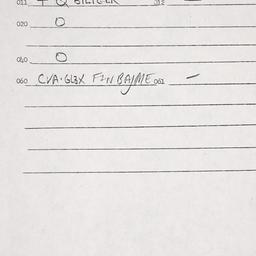 011 + Q 012 —
020 O
040 O
060 CVA·GL3X F2N BAJME 061 —